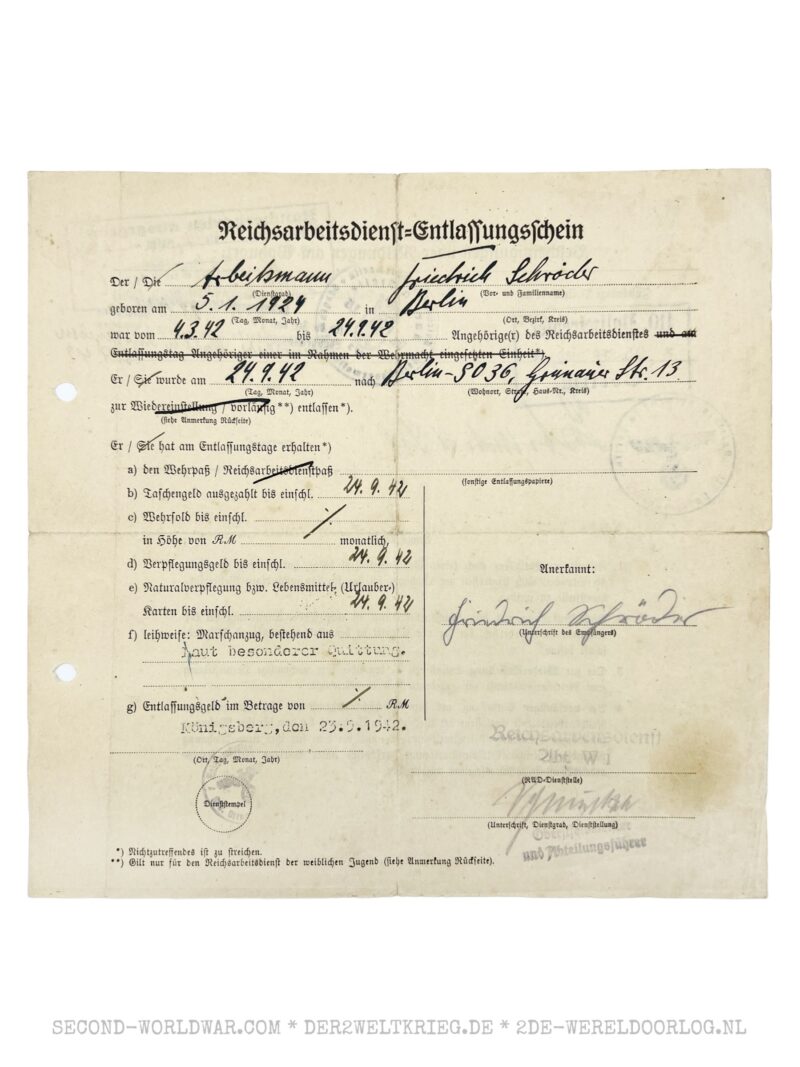 Reichsarbeitsdienst-Entlassungsschein
Der / Die Arbeitsmann Friedrich Schröder
(Dienstgrad) (Vor- und Familienname)
geboren am 5. 1. 1924 in Berlin
(Tag, Monat, Jahr) (Ort, Bezirk, Kreis)
war vom 4.3.42 bis 24.9.42 Angehörige(r) des Reichsarbeitsdienstes und am
Entlassungstag Angehöriger einer im Rahmen der Wehrmacht eingesetzten Einheit*).
Er / Sie wurde am 24.9.42 nach Berlin-SO36, Grünauer Str. 13
(Tag, Monat, Jahr) (Wohnort, Straße, Haus-Nr., Kreis)
zur Wiedereinstellung / vorläufig **) entlassen *).
(siehe Anmerkung Rückseite)
Er / Sie hat am Entlassungstage erhalten*)
a) den Wehrpaß / Reichsarbeitsdienstpaß
(sonstige Entlassungspapiere)
b) Taschengeld ausgezahlt bis einschl. 24. 9. 42
c) Wehrsold bis einschl.
in Höhe von RM monatlich,
d) Verpflegungsgeld bis einschl. 24. 9. 42
e) Naturalverpflegung bzw. Lebensmittel- (Urlauber-)
Karten bis einschl. 24. 9. 42
f) leihweise: Marschanzug, bestehend aus
laut besonderer Quittung.
g) Entlassungsgeld im Betrage von RM
Königsberg, den 23.9.1942.
(Ort, Tag, Monat, Jahr)
Dienststempel
Anerkannt:
Friedrich Schröder
(Unterschrift des Empfängers)
Reichsarbeitsdienst
Abt. W I
(RAD-Dienststelle)
(Unterschrift, Dienstgrad, Dienststellung)
und Abteilungsführer
*) Nichtzutreffendes ist zu streichen.
**) Gilt nur für den Reichsarbeitsdienst der weiblichen Jugend (siehe Anmerkung Rückseite).
SECOND-WORLDWAR.COM * DER2WELTKRIEG.DE * 2DE-WERELDOORLOG.NL